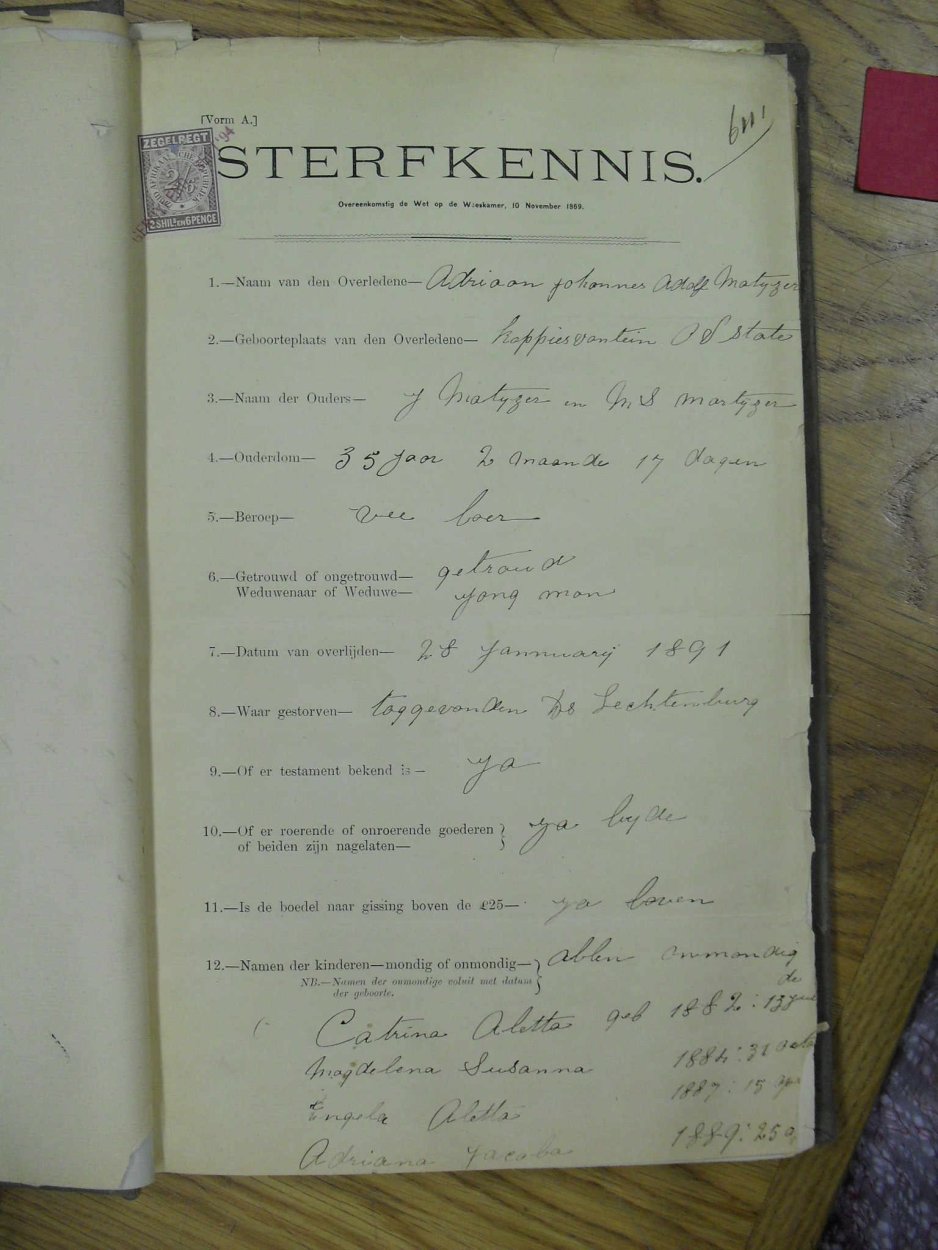 [Vorm A.]
6111
ZEGELREGT
2 SHILS EN 6 PENCE
STERFKENNIS.
Overeenkomstig de Wet op de Weeskamer, 10 November 1869.
1.—Naam van den Overledene— Adriaan Johannes Adolf Matyzer
2.—Geboorteplaats van den Overledene— Kappiesvontein O S State
3.—Naam der Ouders— J Matyzer en M S Martyzer
4.—Ouderdom— 35 Jaar 2 maande 17 dagen
5.—Beroep— vee boer
6.—Getrouwd of ongetrouwd— getroud
Weduwenaar of Weduwe— Jong man
7.—Datum van overlijden— 28 Jannuarij 1891
8.—Waar gestorven— Ds Lechtenburg
9.—Of er testament bekend is— Ja
10.—Of er roerende of onroerende goederen } Ja byde
of beiden zijn nagelaten—
11.—Is de boedel naar gissing boven de £25— Ja boven
12.—Namen der kinderen—mondig of onmondig—} allen onmondig
NB.—Namen der onmondige voluit met datum
der geboorte.
de
Catrina Aletta geb 1882: 13
Magdelena Susanna 1884: 31
Engela Aletta 1887: 15
Adriana Jacoba 1889: 25